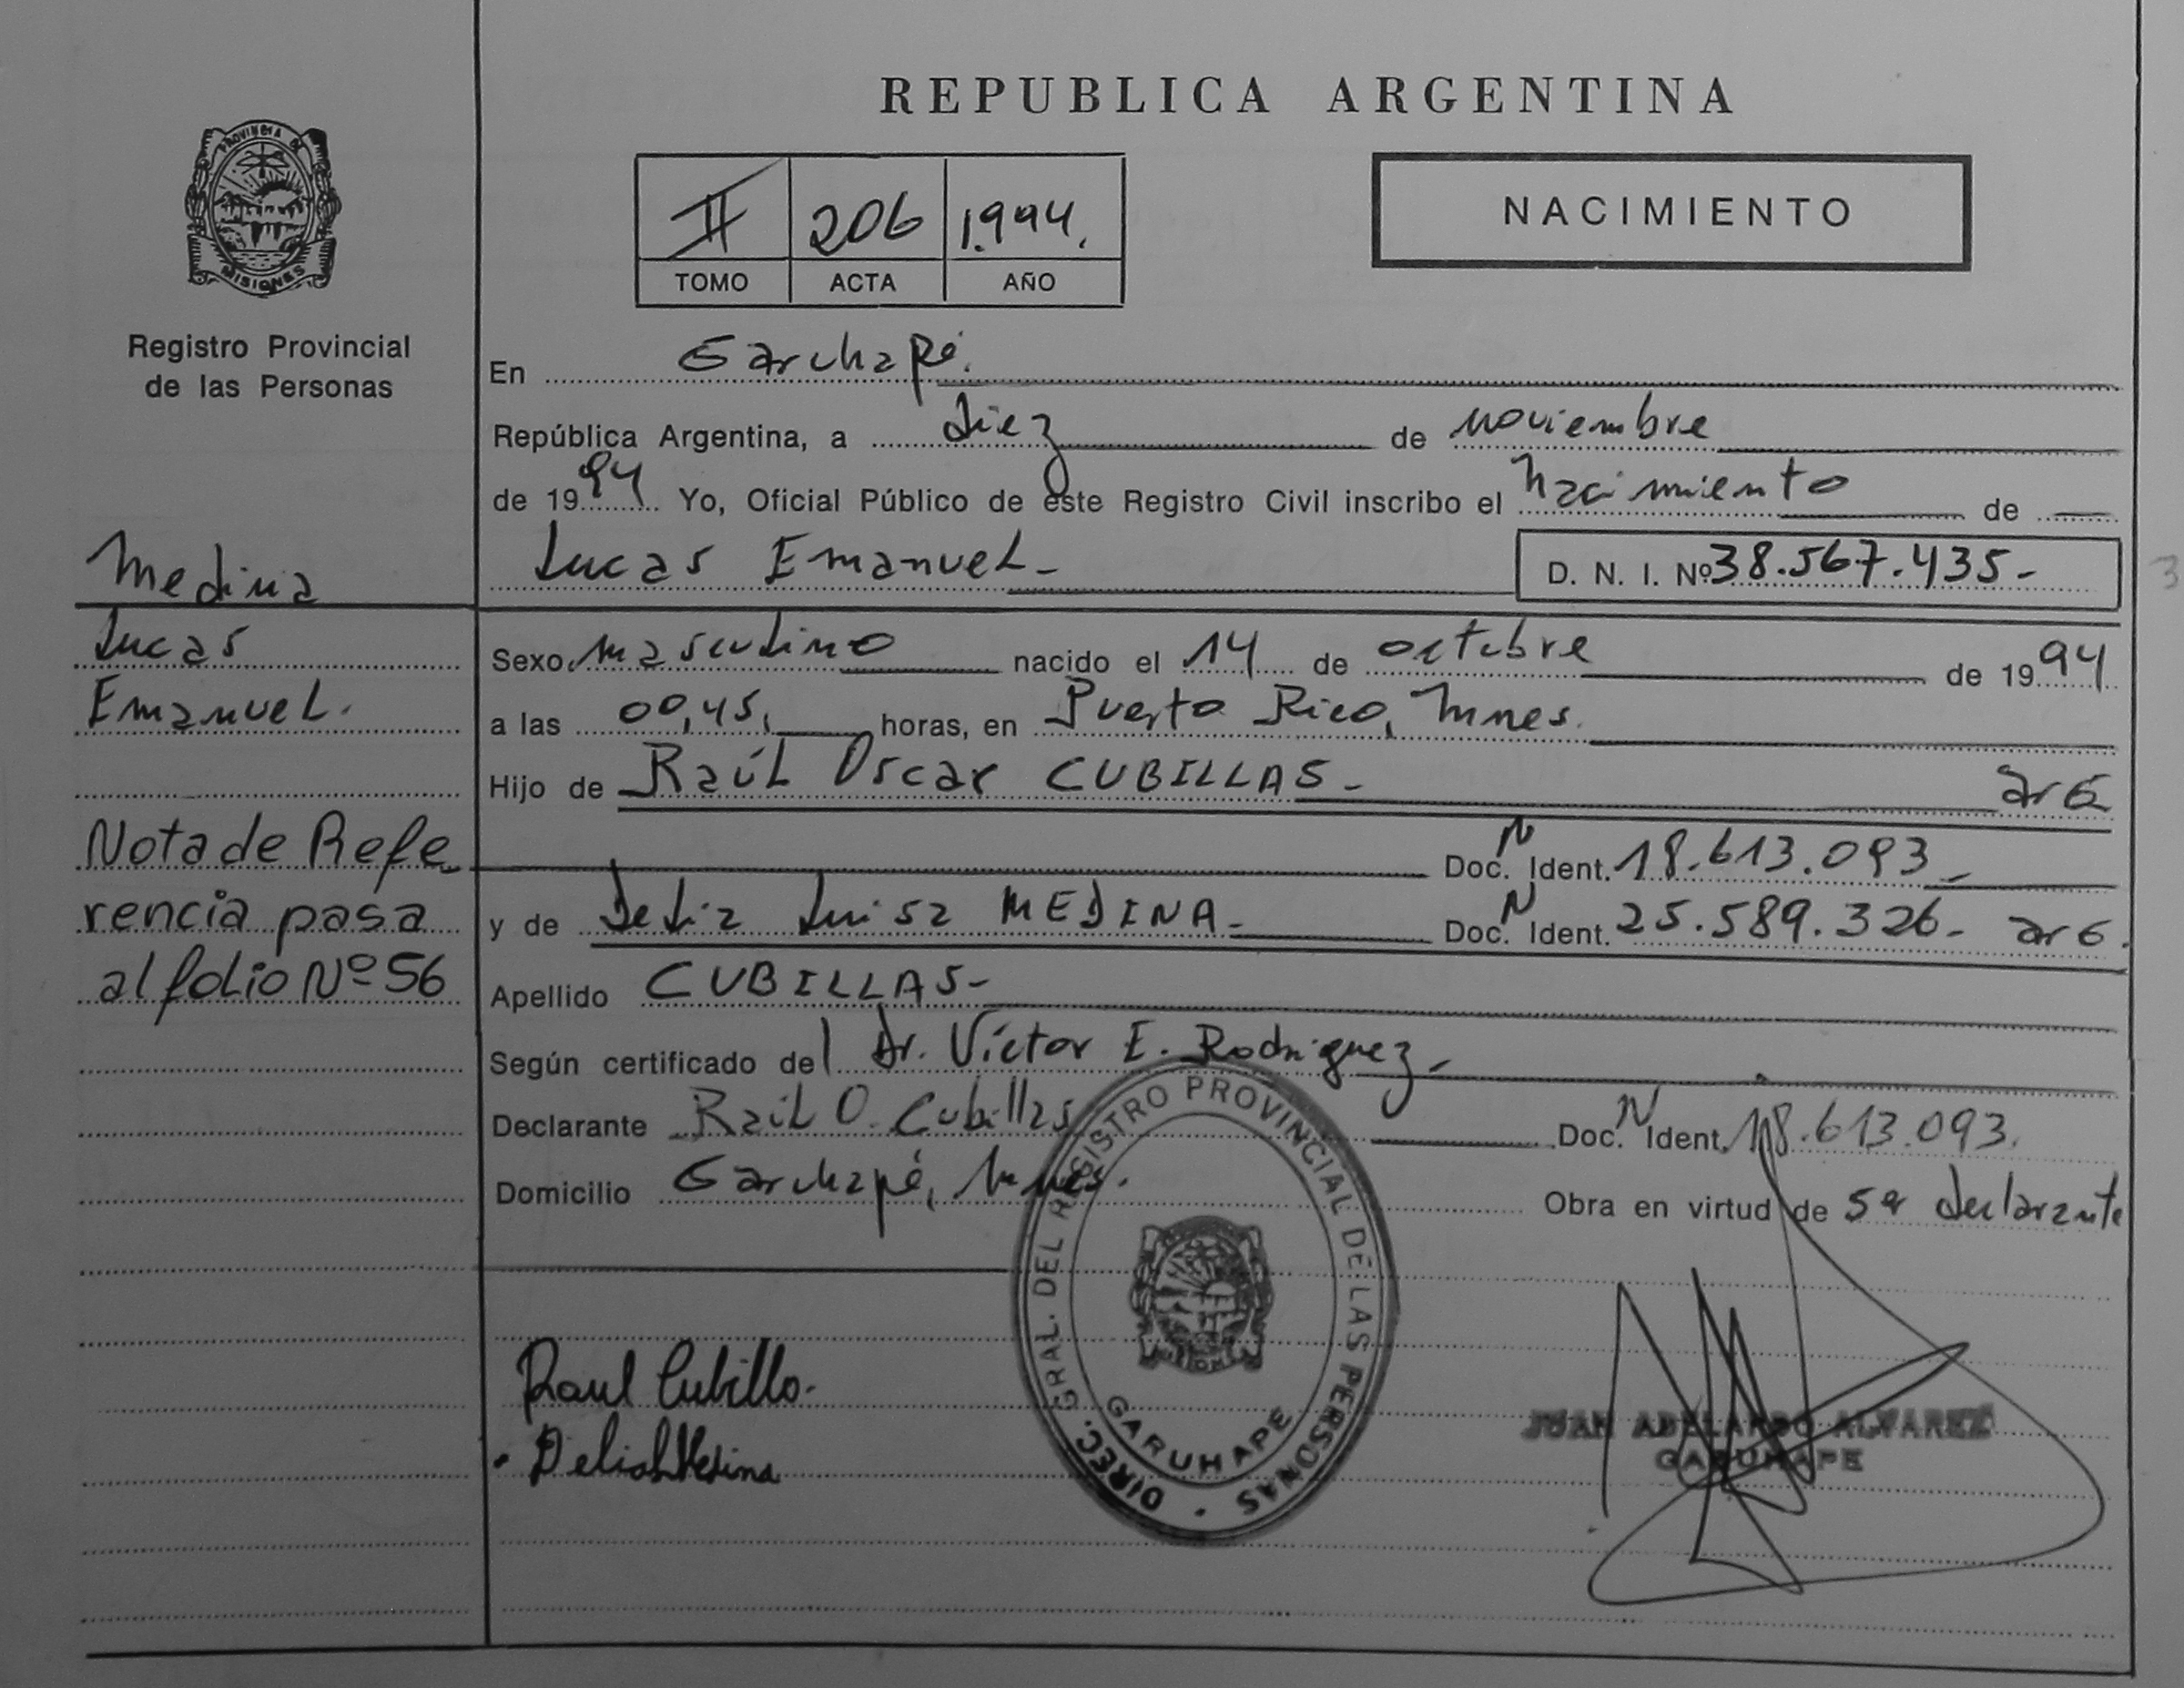 REPUBLICA ARGENTINA
PROVINCIA DE
MISIONES
Registro Provincial
de las Personas
II 206 1.994.
TOMO ACTA AÑO
NACIMIENTO
En Garuhapé.
República Argentina, a diez de noviembre
de 1994 Yo, Oficial Público de este Registro Civil inscribo el Nacimiento de
Lucas Emanuel- D. N. I. Nº 38.567.435-
Sexo masculino nacido el 14 de octubre de 1994
a las 00,45, horas, en Puerto Rico, Mnes.
Hijo de Raúl Oscar CUBILLAS- arG
Doc. N Ident. 18.613.093-
y de Delia Luisa MEDINA- Doc. N Ident. 25.589.326- arG.
Apellido CUBILLAS-
Según certificado del Dr. Víctor E. Rodriguez-
Declarante Raúl O. Cubillas Doc. N Ident. 18.613.093.
Domicilio Garuhapé, Mnes. Obra en virtud de ser declarante
Medina
Lucas
Emanuel.
Nota de Refe
rencia pasa
al folio Nº 56
Raul Cubillo.
Delia L Medina
DIREC. GRAL. DEL REGISTRO PROVINCIAL DE LAS PERSONAS
GARUHAPE
JUAN ADELARDO ALVAREZ
GARUHAPE
3